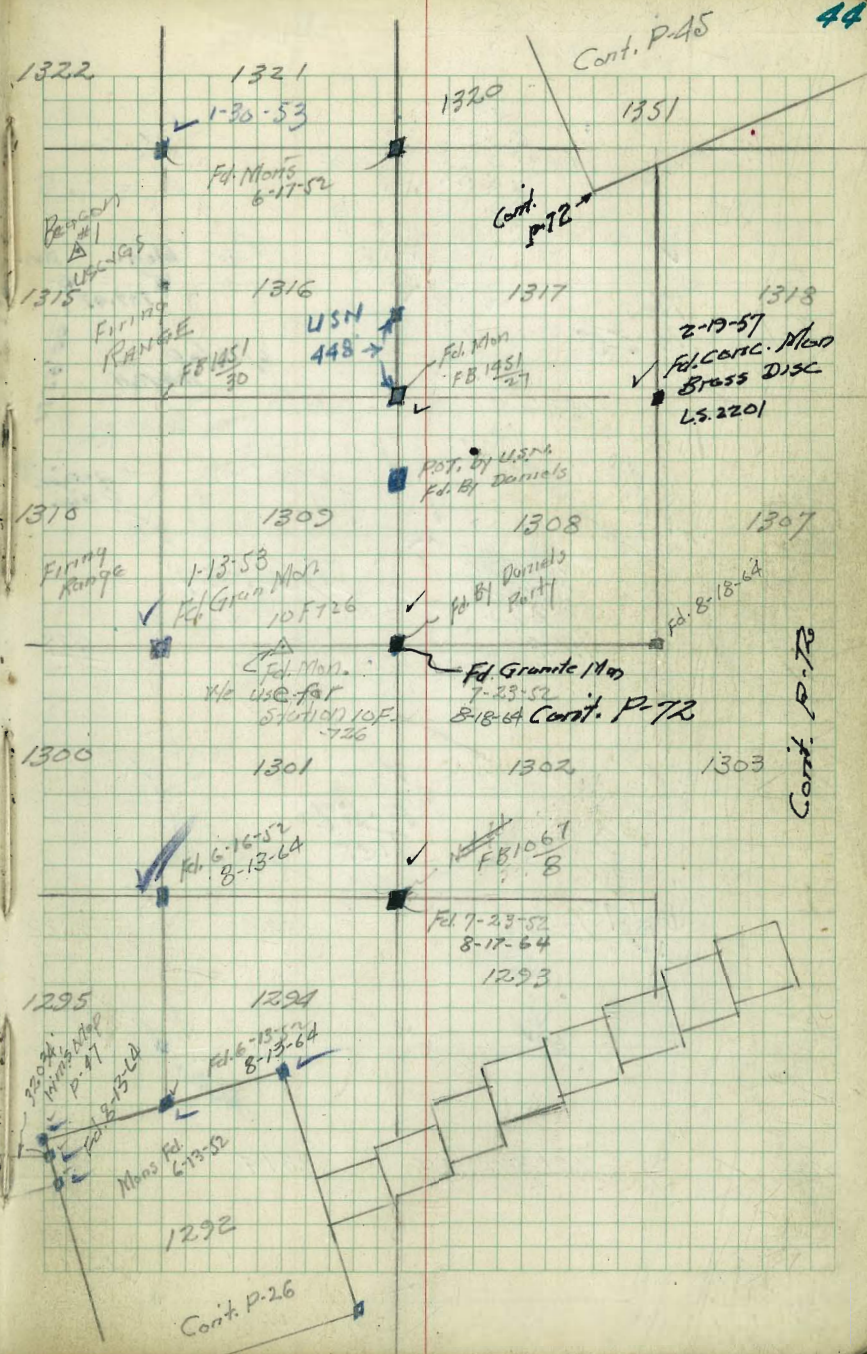 44
Cont. P-45
1322
1321
1320
1351
1-30-53
Fd. Mons
6-17-52
Cont.
P-72
Beacon
#1
USC&GS
1315
1316
1317
1318
Firing
RANGE
USN
448
FB 1451/30
Fd. Mon
FB 1451/27
2-19-57
Fd. Conc. Mon
Brass Disc
L.S. 2201
P.O.T. by U.S.N.
Fd. By Daniels
1310
1309
1308
1307
Firing
Range
1-13-53
Fd Gran Mon
10 F 726
Fd. By Daniels
Party
Fd. 8-18-64
Fd. Mon.
We use for
Station 10F-
-726
Fd. Granite Mon
7-23-52
8-18-64 Cont. P-72
Cont. P-72
1300
1301
1302
1303
Fd. 6-16-52
8-13-64
FB 1067/8
Fd. 7-23-52
8-17-64
1295
1294
1293
Fd. 6-13-52
8-13-64
P-47
Fd. 8-13-64
Mons Fd.
6-13-52
1292
Cont. P-26